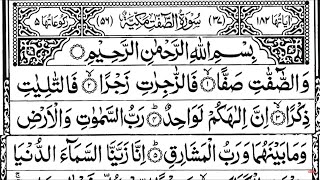 اٰیَاتُهَا ۱۸۲ (۳۷) سُوْرَةُ الصّٰٓفّٰتِ مَكِّیَّةٌ (۵۶) رُكُوْعَاتُهَا ۵
بِسْمِ اللهِ الرَّحْمٰنِ الرَّحِیْمِ
وَالصّٰٓفّٰتِ صَفًّا ۙ۱ فَالزّٰجِرٰتِ زَجْرًا ۙ۲ فَالتّٰلِیٰتِ
ذِكْرًا ۙ۳ اِنَّ اِلٰهَكُمْ لَوَاحِدٌ ؕ۴ رَبُّ السَّمٰوٰتِ وَالْاَرْضِ
وَمَا بَیْنَهُمَا وَرَبُّ الْمَشَارِقِ ؕ۵ اِنَّا زَیَّنَّا السَّمَآءَ الدُّنْیَا